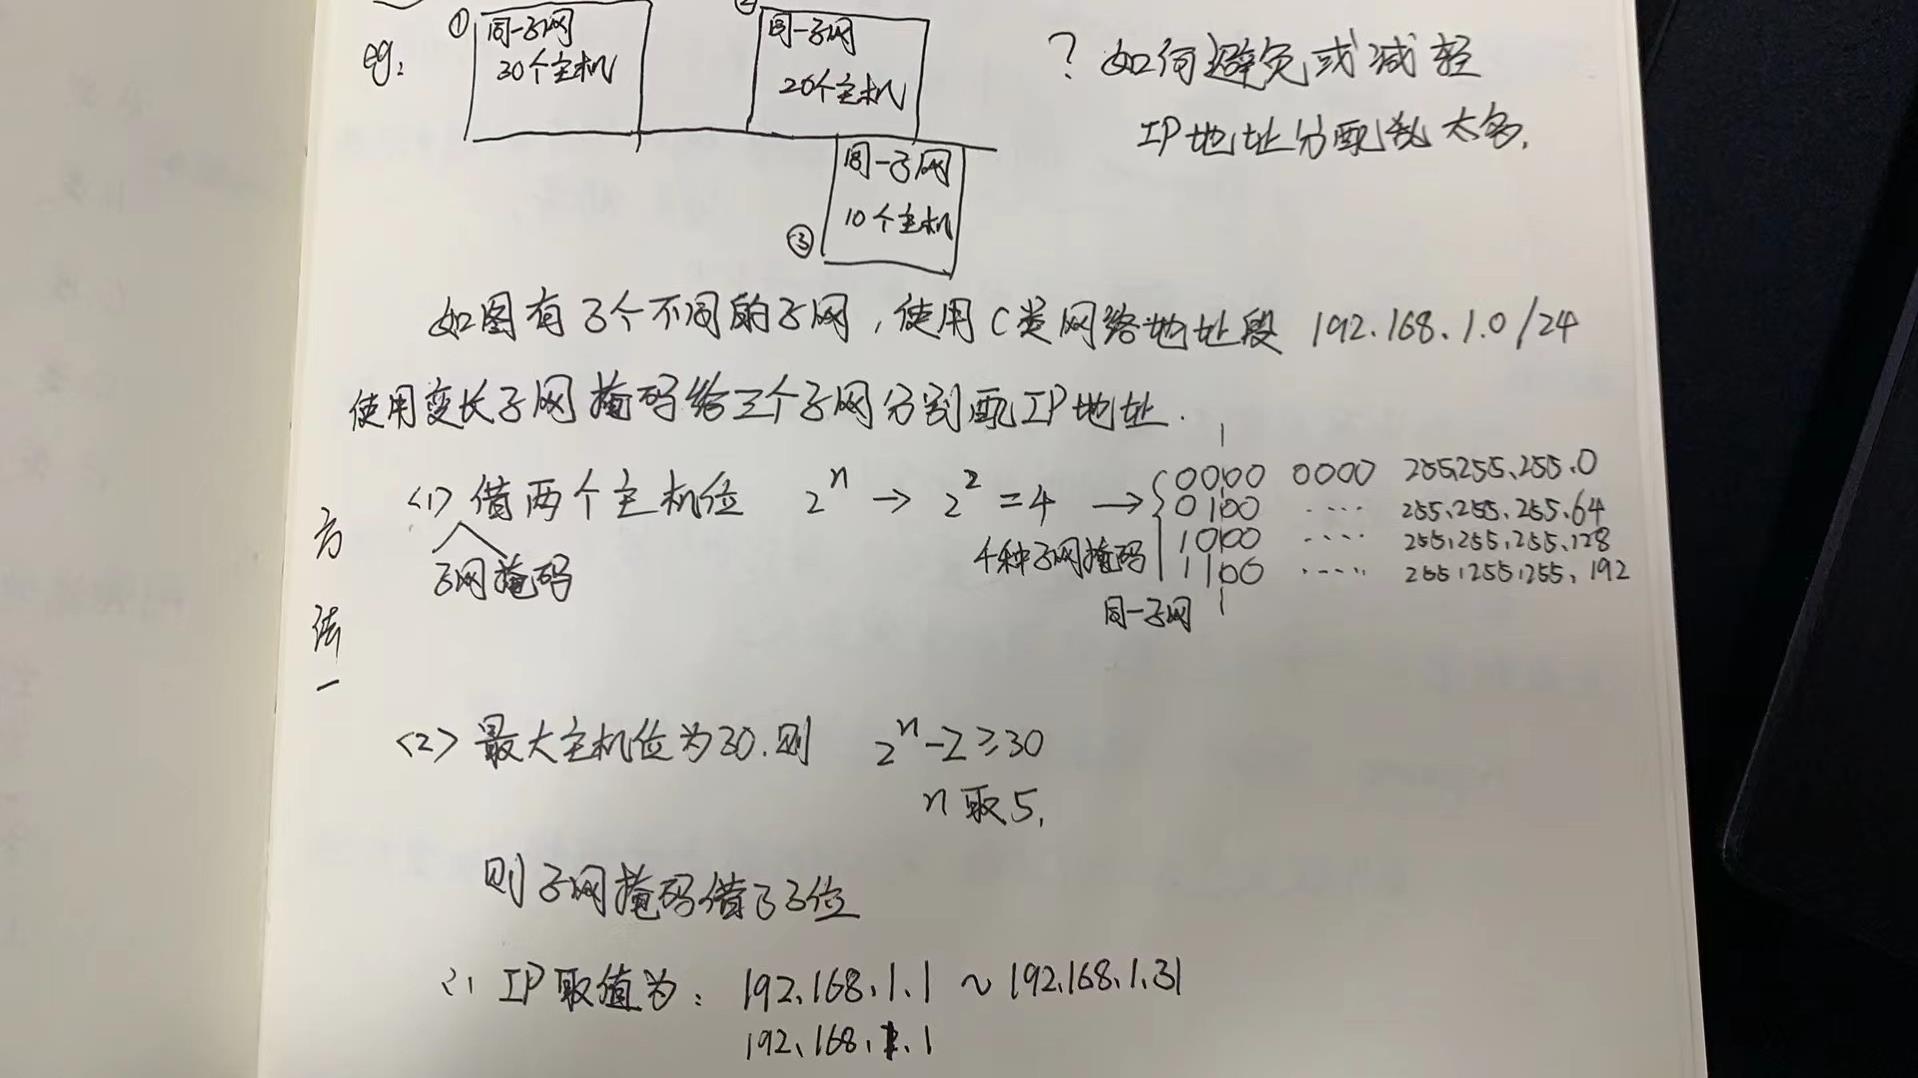 eg:
① 同一子网
30个主机
② 同一子网
20个主机
③ 同一子网
10个主机
? 如何避免或减轻
IP地址分配 太多.
如图有3个不同的子网,使用C类网络地址段 192.168.1.0/24
使用变长子网掩码给三个子网分别配IP地址.
方法一
<1> 借两个主机位 2ⁿ → 2² = 4 → 0000 0000 255.255.255.0
子网掩码
4种子网掩码
0100 ···· 255.255.255.64
1000 ···· 255.255.255.128
1100 ····· 255.255.255.192
同一子网
<2> 最大主机位为30.则 2ⁿ-2≥30
n取5.
则子网掩码借了3位
∴ IP取值为: 192.168.1.1 ~ 192.168.1.31
192.168.1.1